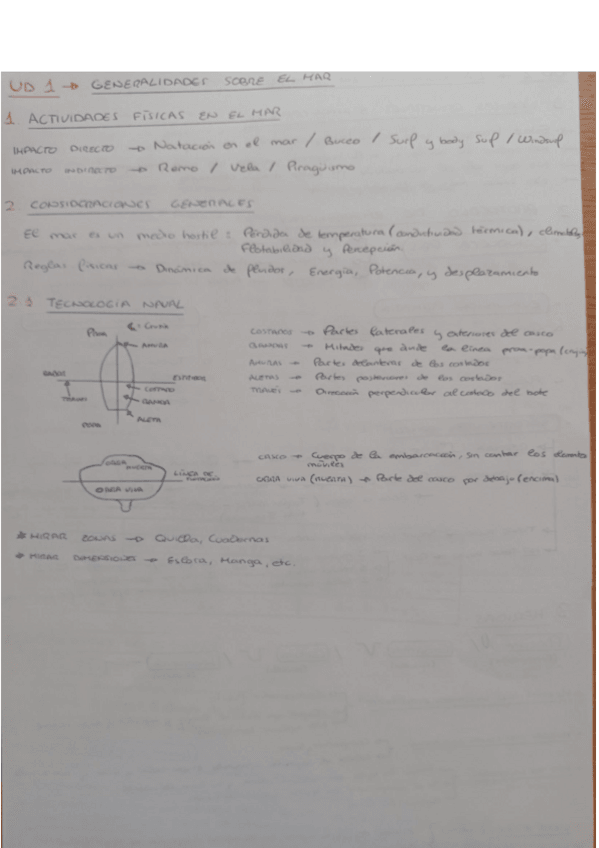 UD 1 → GENERALIDADES SOBRE EL MAR
1. ACTIVIDADES FÍSICAS EN EL MAR
IMPACTO DIRECTO → Natación en el mar / Buceo / Surf y body Surf / Windsurf
IMPACTO INDIRECTO → Remo / Vela / Piragüismo
2. CONSIDERACIONES GENERALES
El mar es un medio hostil: Pérdida de temperatura (conductividad térmica),
Flotabilidad y Percepción.
Reglas físicas → Dinámica de fluidos, Energía, Potencia, y desplazamiento
2.1 TECNOLOGÍA NAVAL
PROA
= CRUJÍA
AMURA
BABOR
ESTRIBOR
TRAVÉS
COSTADO
BANDA
ALETA
POPA
COSTADOS → Partes laterales y exteriores del casco
BANDAS → Mitades que divide la línea proa-popa
AMURAS → Partes delanteras de los costados
ALETAS → Partes posteriores de los costados
TRAVÉS → Dirección perpendicular al costado del bote
OBRA MUERTA
LÍNEA DE FLOTACIÓN
OBRA VIVA
CASCO → Cuerpo de la embarcación, sin contar los elementos
móviles
OBRA VIVA (MUERTA) → Parte del casco por debajo (encima)
* MIRAR ZONAS → Quilla, Cuadernas
* MIRAR DIMENSIONES → Eslora, Manga, etc.